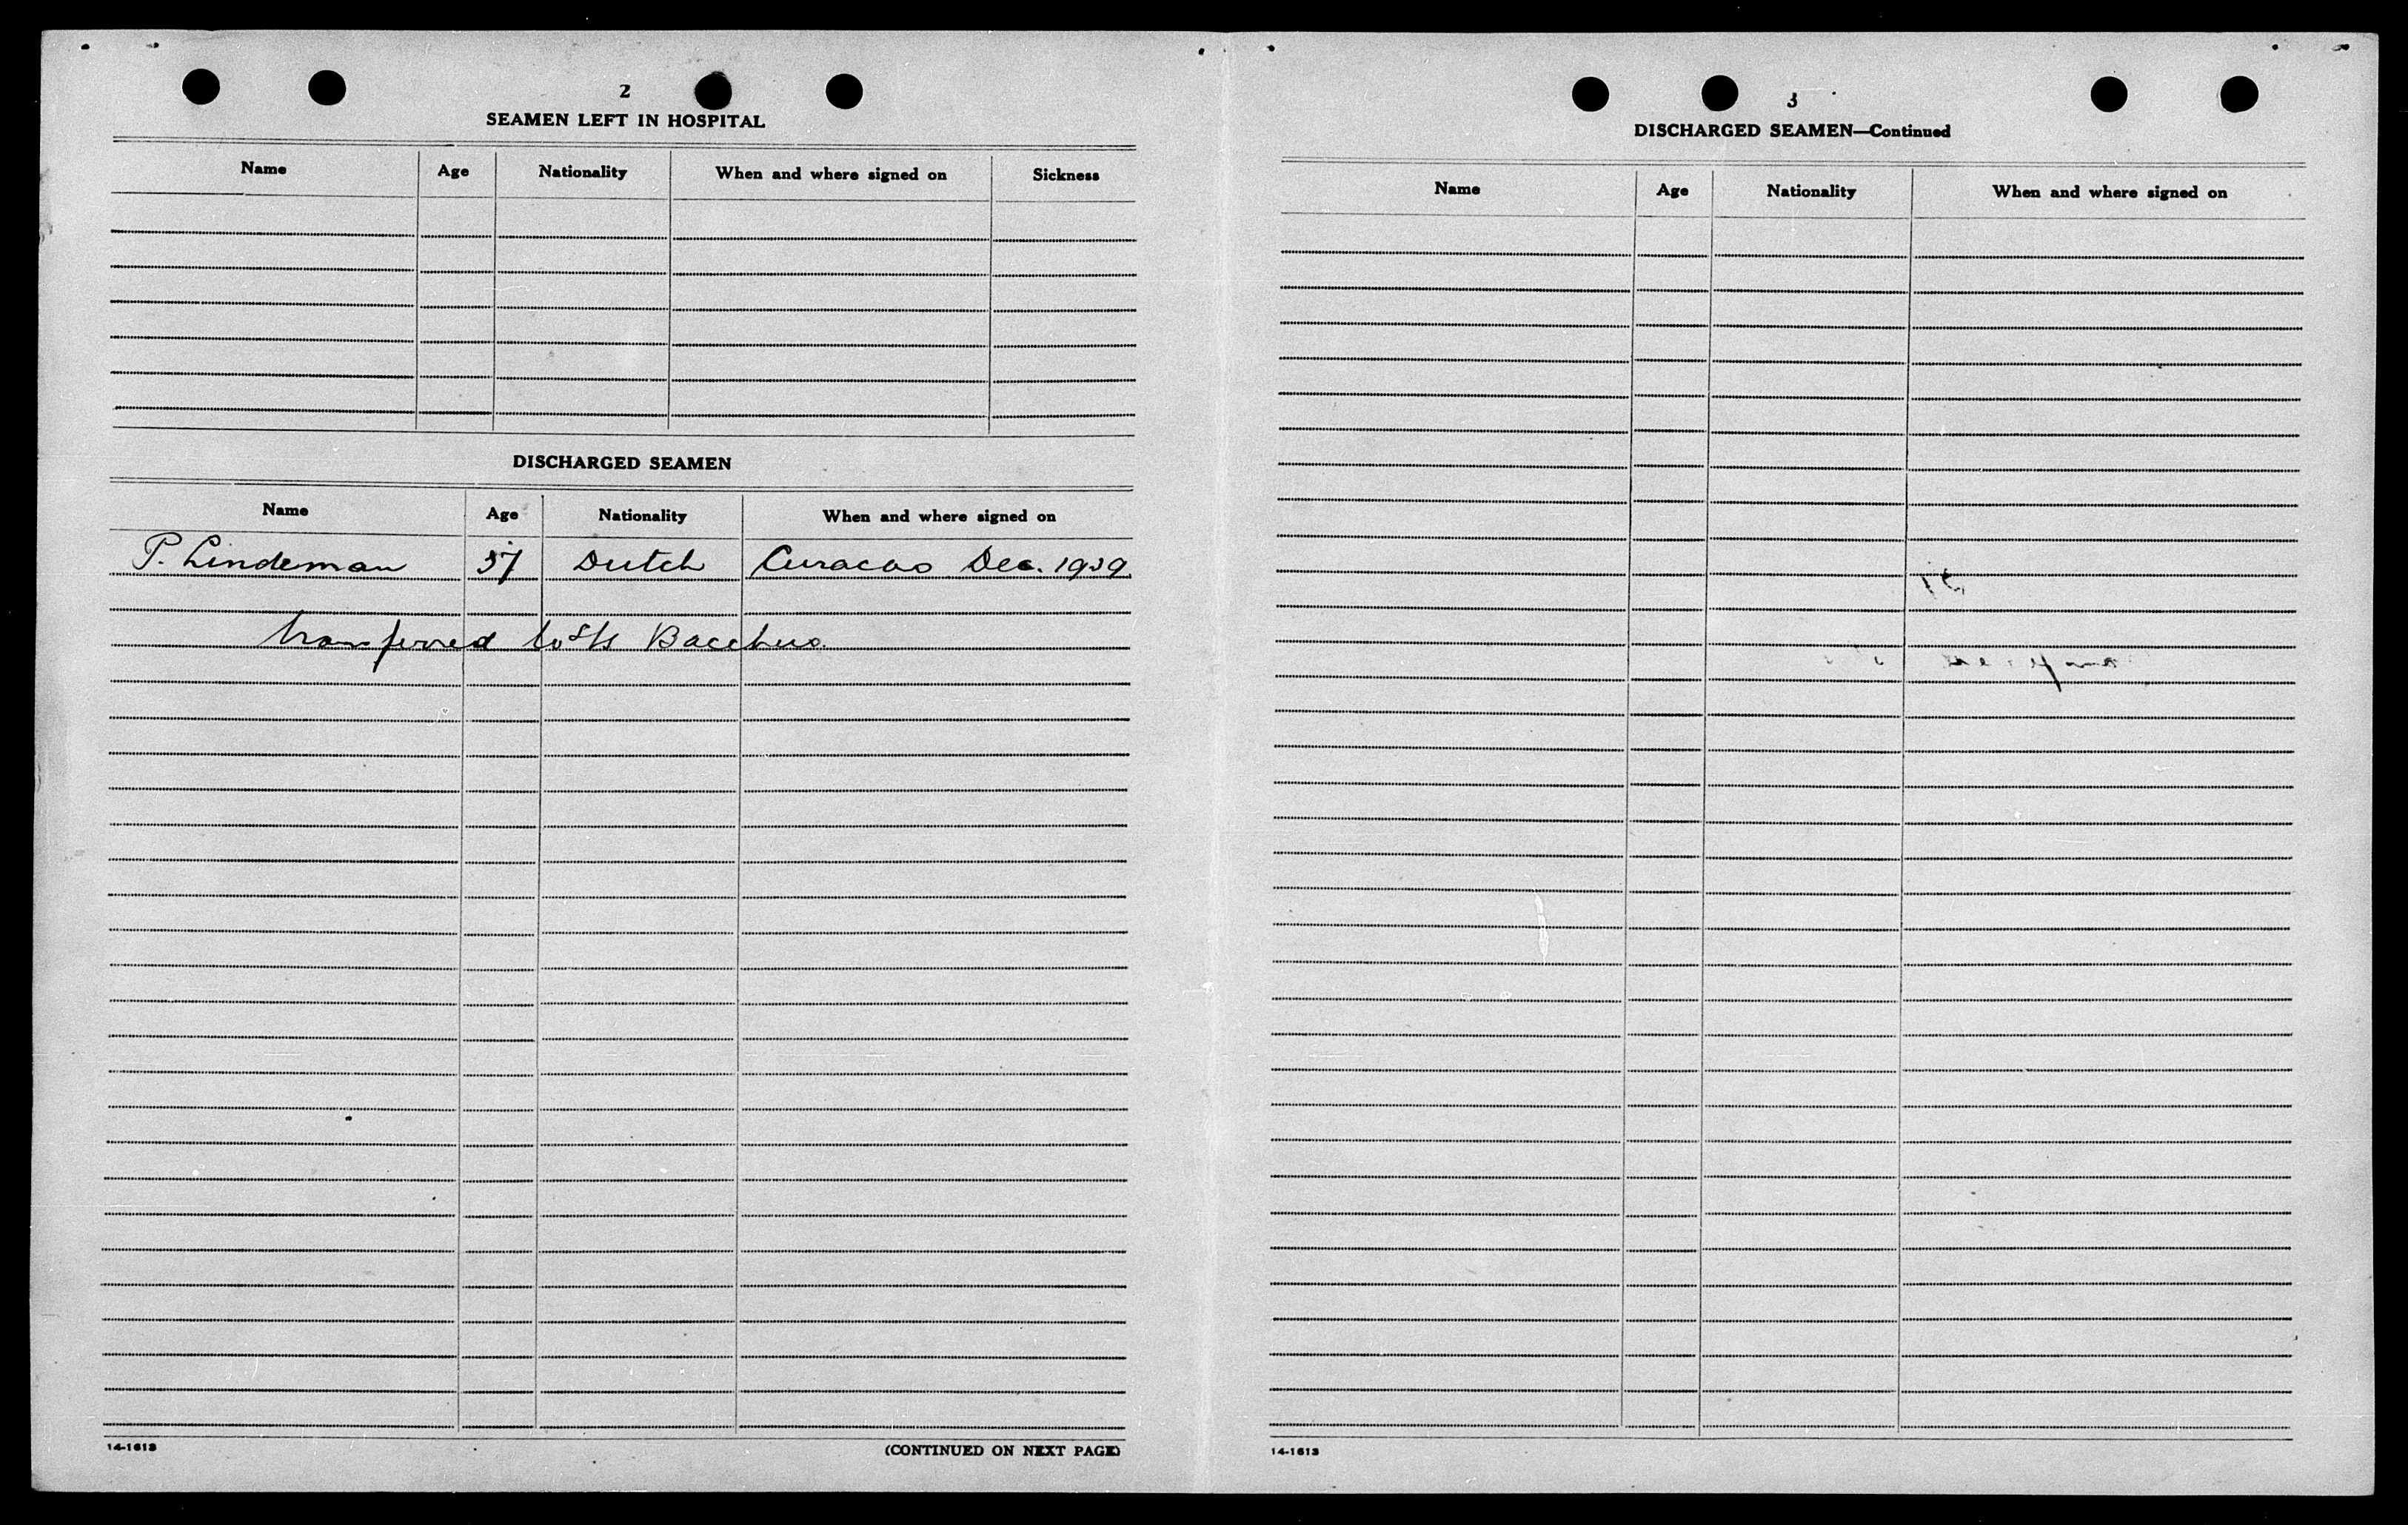 2
SEAMEN LEFT IN HOSPITAL
Name Age Nationality When and where signed on Sickness
DISCHARGED SEAMEN
Name Age Nationality When and where signed on
P. Lindeman 37 Dutch Curacao Dec. 1939
transferred to SS Bacchus.
14-1613
(CONTINUED ON NEXT PAGE)
3
DISCHARGED SEAMEN—Continued
Name Age Nationality When and where signed on
14-1613